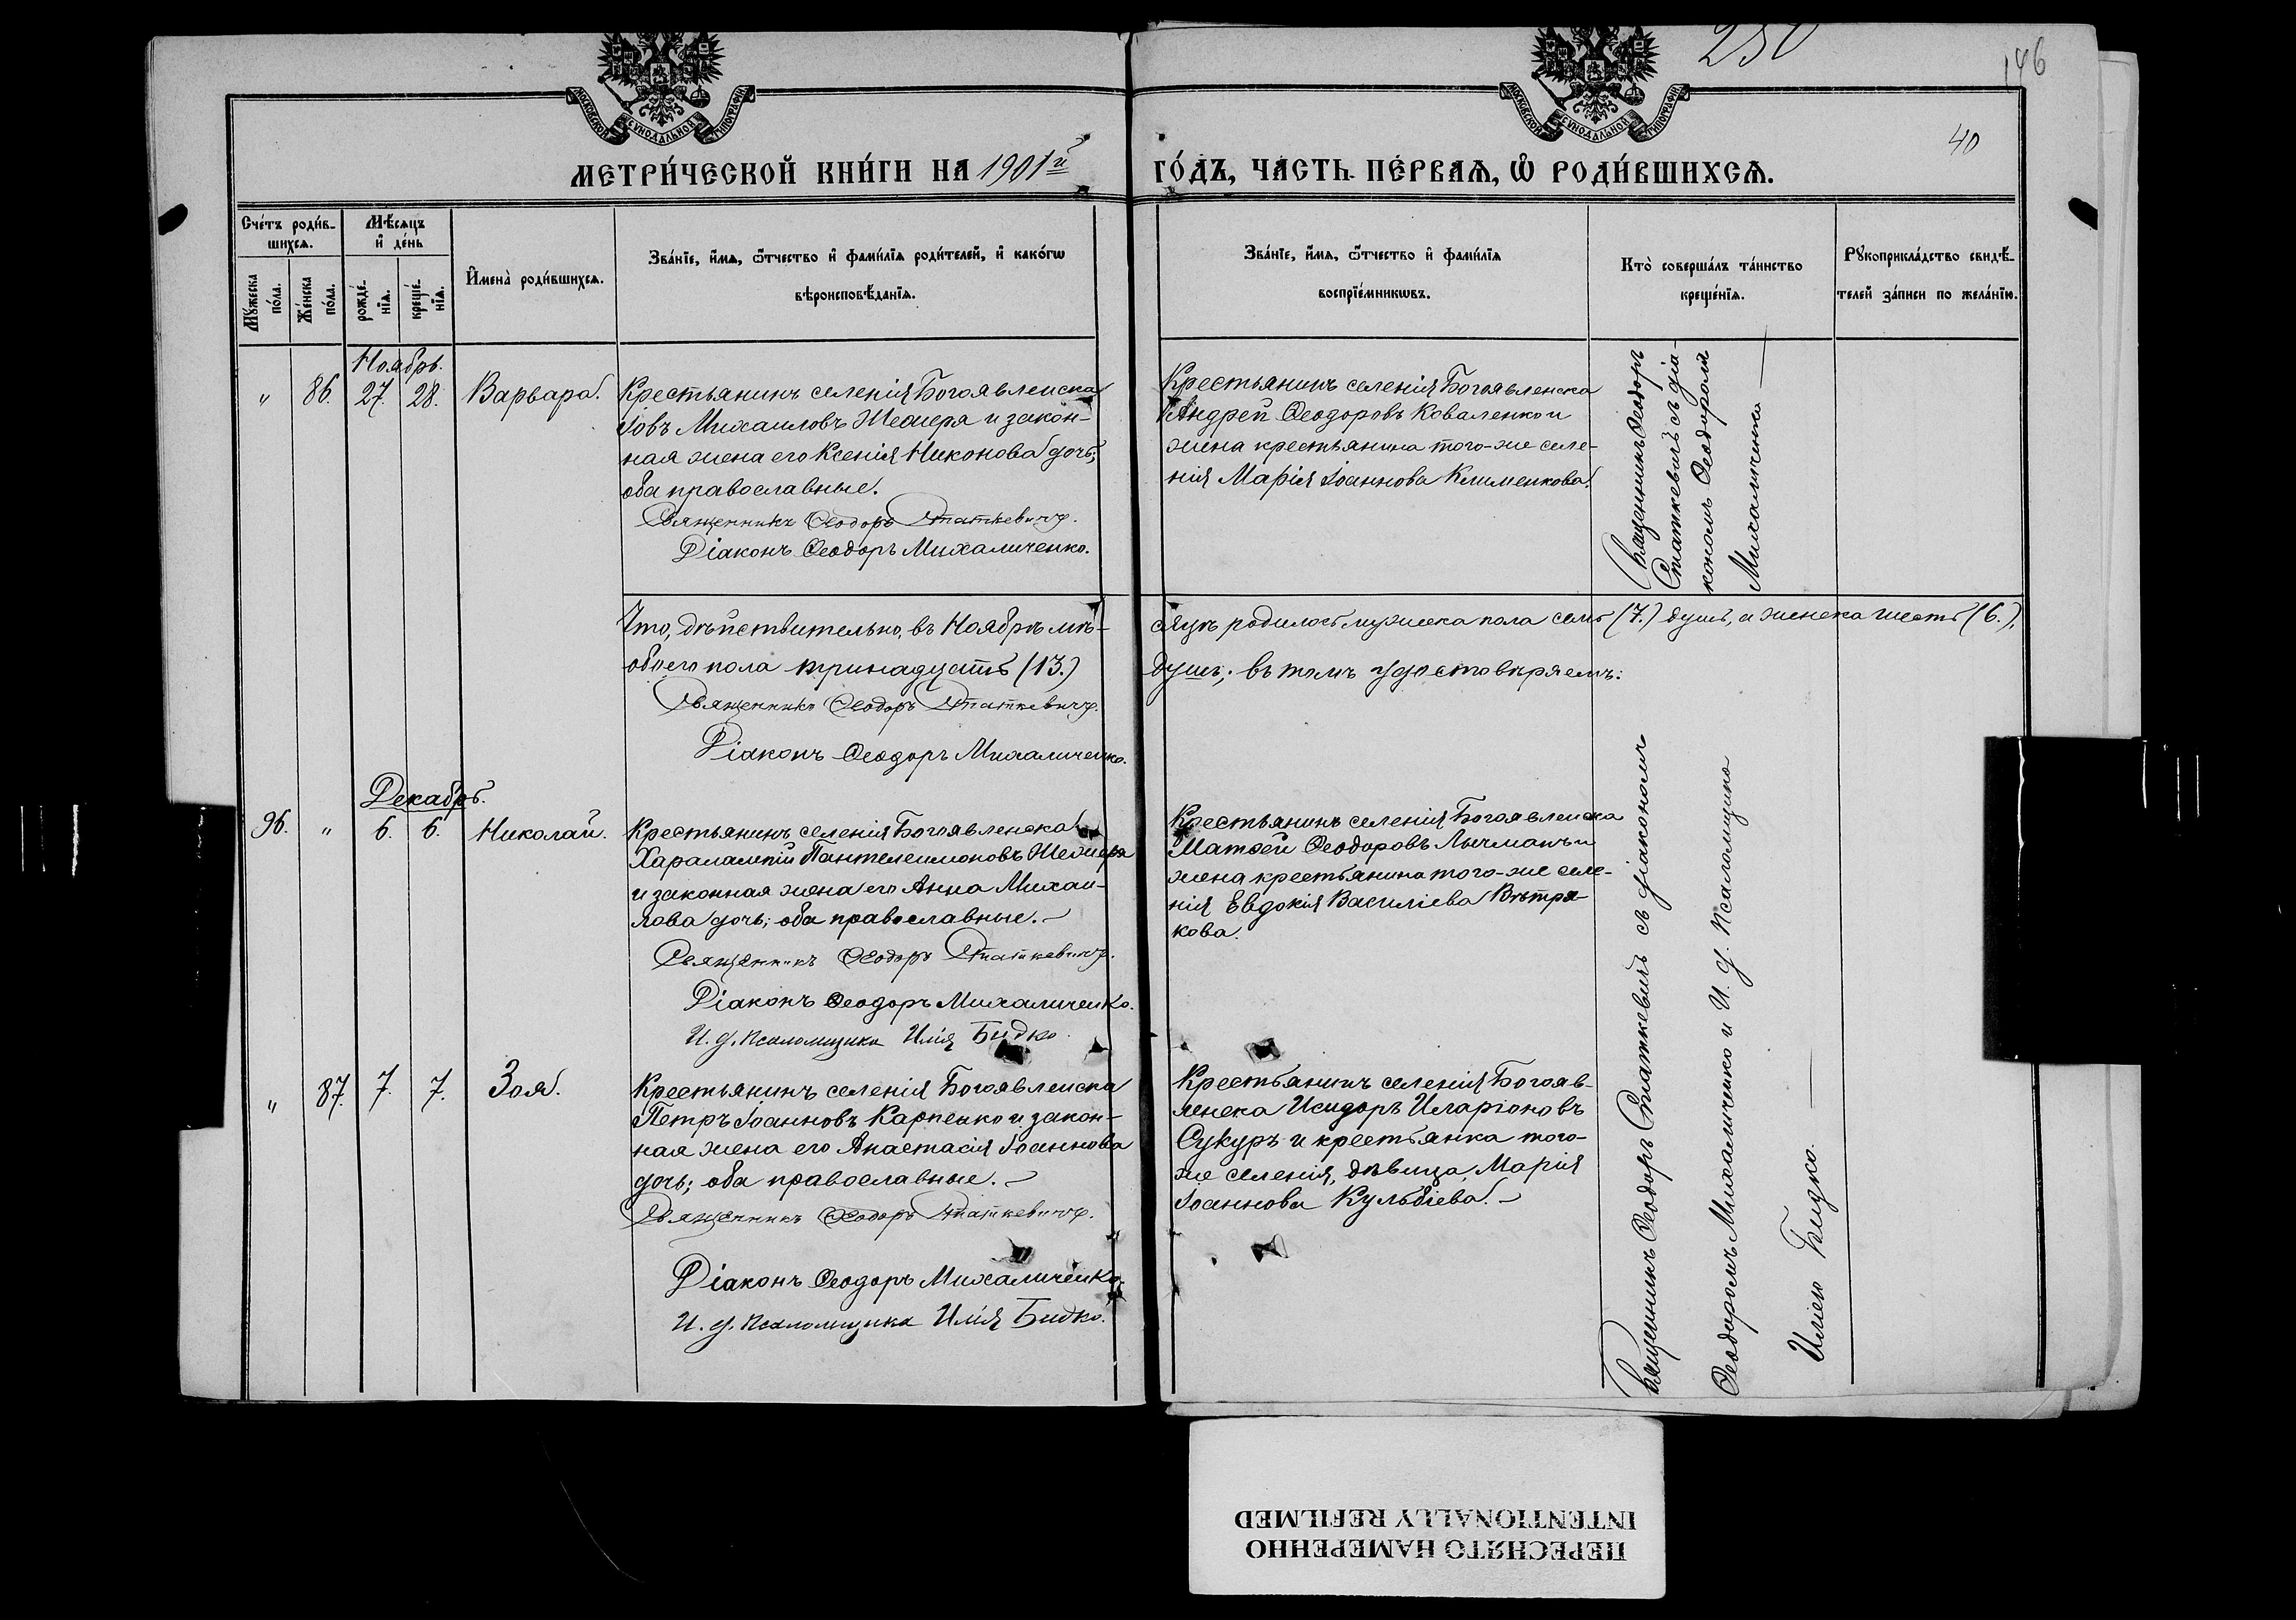 250
146
40
МОСКОВСКОЙ СѴНОДАЛЬНОЙ ТИПОГРАФІИ
МОСКОВСКОЙ СѴНОДАЛЬНОЙ ТИПОГРАФІИ
МЕТРИ́ЧЕСКОЙ КНИ́ГИ НА 1901й
ГО́ДЪ, ЧА́СТЬ ПЕ́РВАѦ, Ѽ РОДИ́ВШИХСѦ.
Сче́тъ роди́в-
шихсѧ.
Мꙋ́жеска
по́ла.
Же́нска
по́ла.
Мѣ́сѧцъ
и҆ де́нь
рожде́-
нїѧ.
креще́-
нїѧ.
И҆мена̀ роди́вшихсѧ.
Зва́нїе, и҆́мѧ, ѻ҆́тчество и҆ фами́лїѧ роди́телей, и҆ како́гѡ
вѣроисповѣ́данїѧ.
Зва́нїе, и҆́мѧ, ѻ҆́тчество и҆ фами́лїѧ
воспрїе́мникѡвъ.
Кто̀ соверша́лъ та́инство
креще́нїѧ.
Рꙋкоприкла́дство свидѣ́-
телей за́писи по жела́нїю.
Ноябрь.
" 86. 27. 28. Варвара.
Крестьянинъ селенія Богоявленска
Іовъ Михаиловъ Жемеря и закон-
ная жена его Ксенія Никонова дочь;
оба православные.
Священникъ Ѳеодоръ Статкевичъ.
Діаконъ Ѳеодоръ Михаличенко.
Крестьянинъ селенія Богоявленска
Андрей Ѳеодоровъ Коваленко и
жена крестьянина того-же селе-
нія Марія Іоаннова Клименкова.
Священникъ Ѳеодоръ
Статкевичъ съ діа-
кономъ Ѳеодоромъ
Михаличенко
Что, дѣйствительно, въ Ноябрѣ мѣ-
сяцѣ родилось мужеска пола семь (7.) душъ, а женска шесть (6.),
обоего пола тринадцать (13.)
душъ; въ томъ удостовѣряемъ:
Священникъ Ѳеодоръ Статкевичъ.
Діаконъ Ѳеодоръ Михаличенко.
Декабрь.
96. " 6. 6. Николай.
Крестьянинъ селенія Богоявленска
Харалампій Пантелеимоновъ Жемеря
и законная жена его Анна Михаи-
лова дочь; оба православные.
Священникъ Ѳеодоръ Статкевичъ.
Діаконъ Ѳеодоръ Михаличенко.
И. д. псаломщика Илія Бидко.
Крестьянинъ селенія Богоявленска
Матѳей Ѳеодоровъ Лычманъ и
жена крестьянина того-же селе-
нія Евдокія Василіева Вѣтря-
кова.
" 87. 7. 7. Зоя.
Крестьянинъ селенія Богоявленска
Петръ Іоанновъ Карпенко и закон-
ная жена его Анастасія Іоаннова
дочь; оба православные.
Священникъ Ѳеодоръ Статкевичъ.
Діаконъ Ѳеодоръ Михаличенко.
И. д. псаломщика Илія Бидко.
Крестьянинъ селенія Богояв-
ленска Исидоръ Иларіоновъ
Сукуръ и крестьянка того-
же селенія, дѣвица, Марія
Іоаннова Кульбіева.
Священникъ Ѳеодоръ Статкевичъ съ діакономъ
Ѳеодоромъ Михаличенко и И. д. псаломщика
Иліею Бидко.
ПЕРЕСНЯТО НАМЕРЕННО
INTENTIONALLY REFILMED